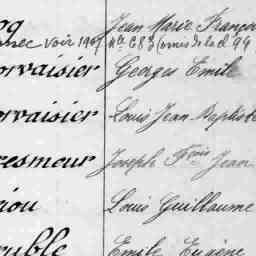 Jean Marie François
voir 1907 Nº 683 (omis de la cl. 94
orvaisier Georges Emile
orvaisier Louis Jean Baptiste
resmeur Joseph Fois Jean
iou Louis Guillaume
ruble Emile Eugène